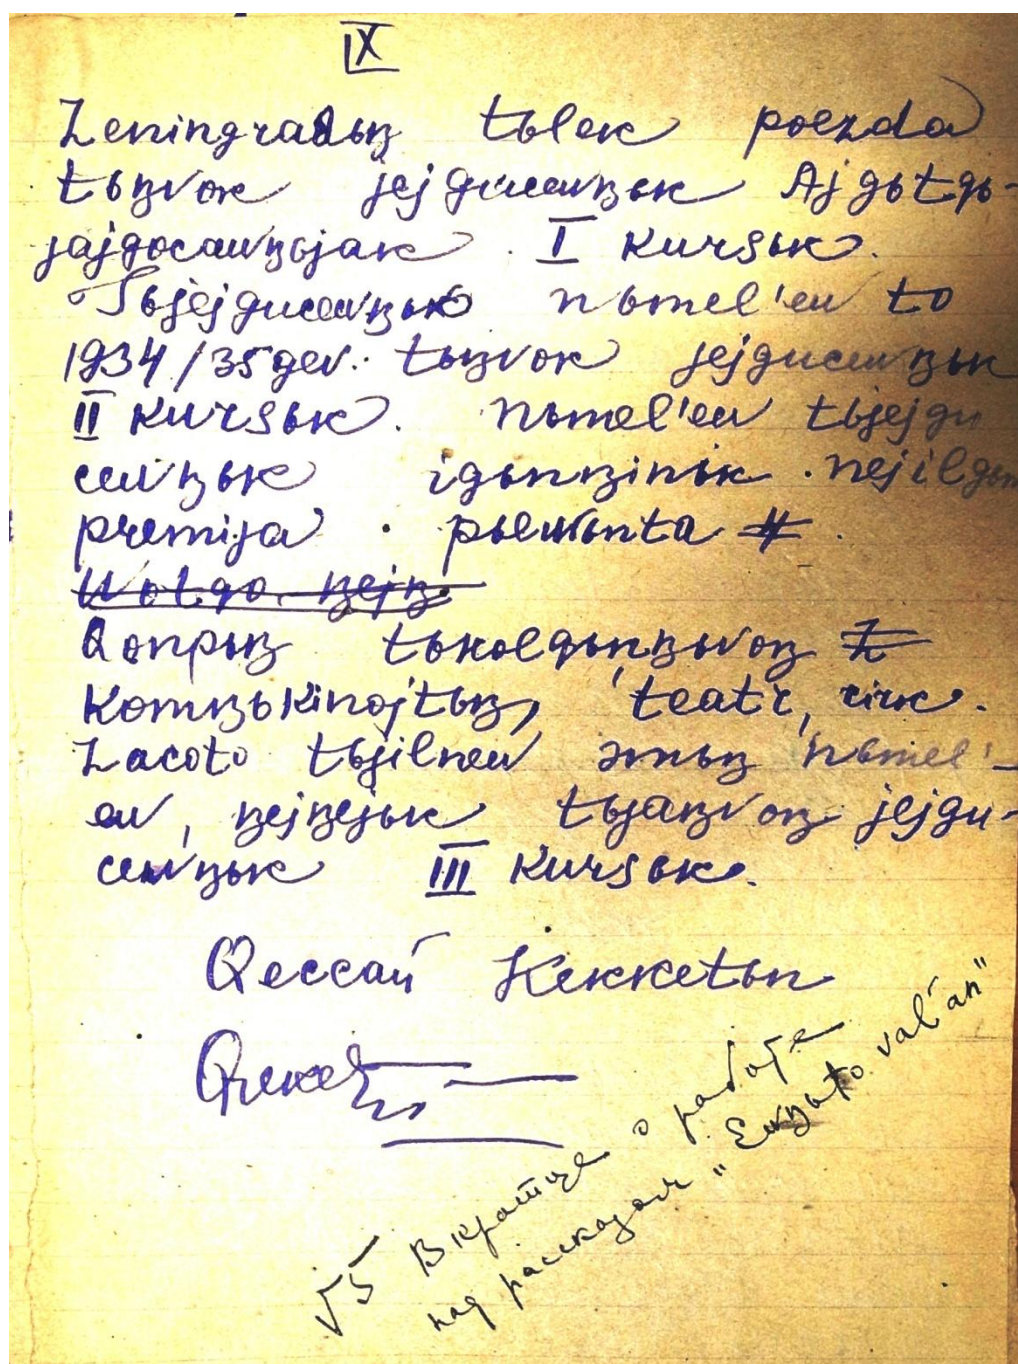 IX
Leningradьŋ tьlek poezda
tьŋvok jejgucewŋьk Ajgьtgь-
jajgocawŋьjak. I kursьk.
Tьjejgucewŋьk nьmel'ew to
1934/35 gev. tьŋvok jejgucewŋьk
II kursьk. Nьmel'ew tьjejgu
cewŋьk igьnŋinik. nejilgьn
premija.
Qonpьŋ tьkolqьnŋьvoŋ
Komŋьkinojtьŋ, teatr, cirk.
Lacoto tьjilnew əmьŋ nьmel'-
ew, ŋejŋejьk tьjaŋvoŋ jejgu-
cewŋьk III kursьk.
Qeccaй Kekketьn
√5 Вкратце о работе
над рассказом „Ewŋьto val'an"